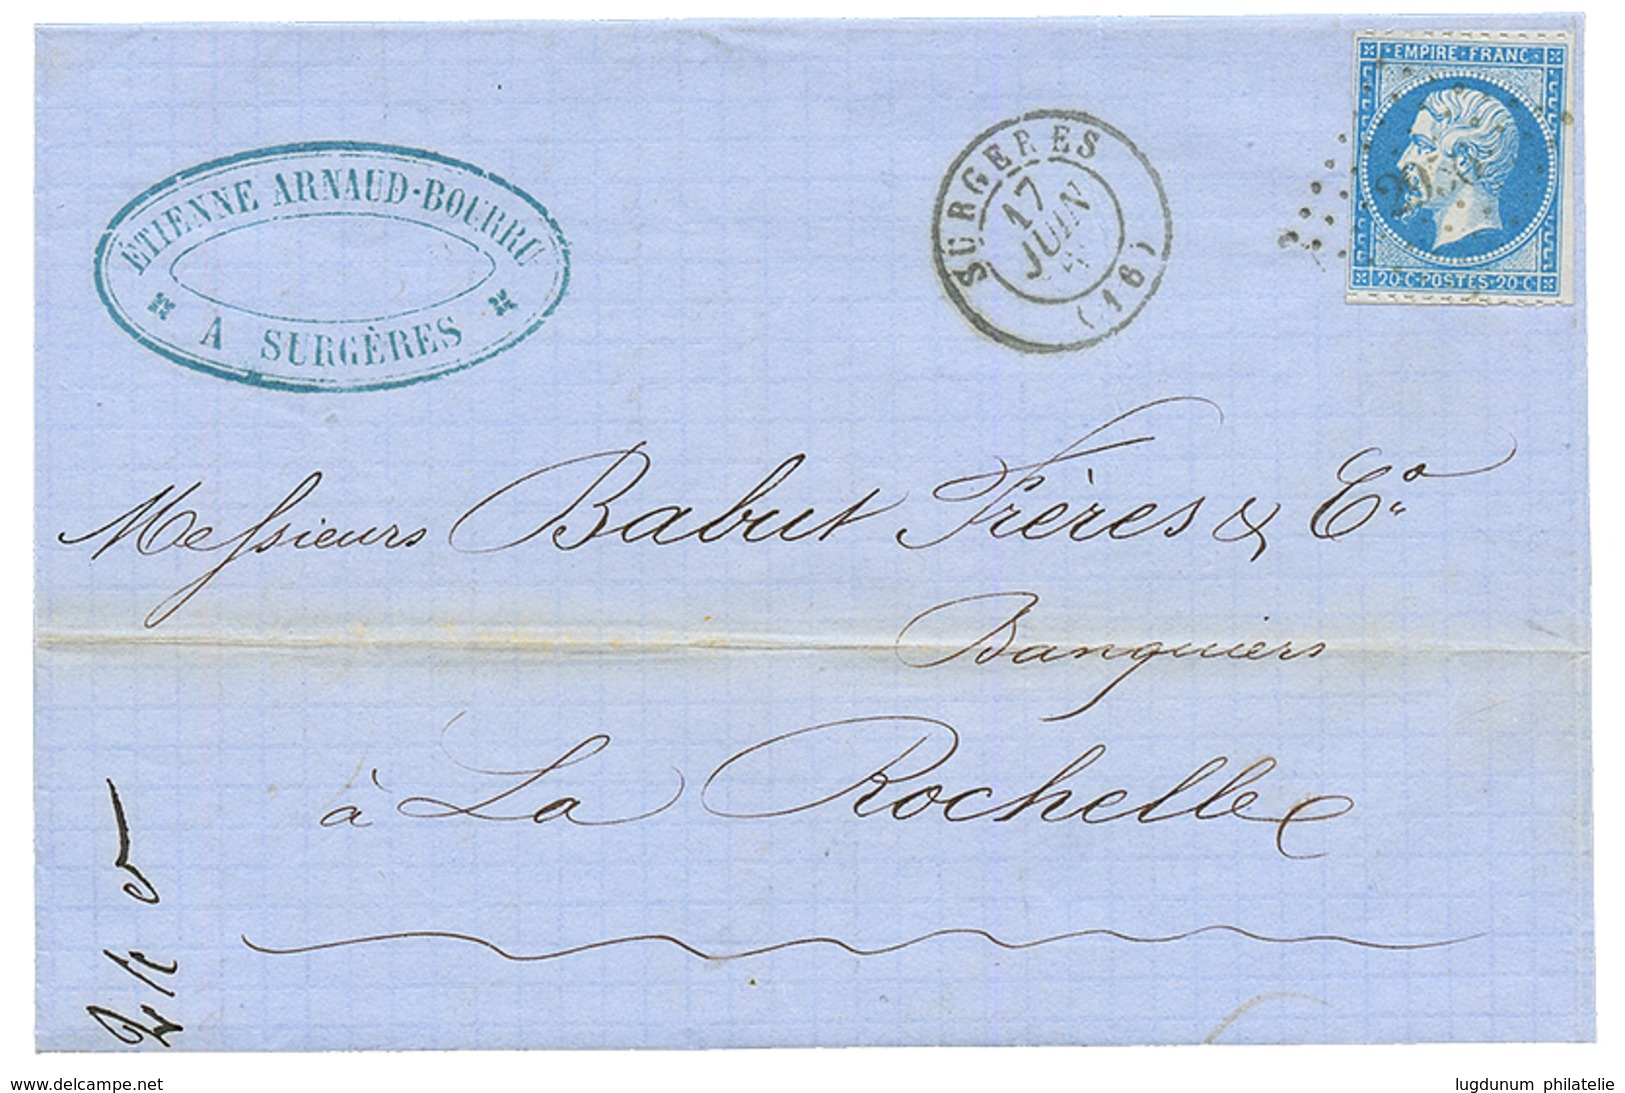 EMPIRE · FRANC
20·C·POSTES·20·C
ÉTIENNE ARNAUD-BOURRU
A SURGÈRES
SURGERES
17
JUIN
(16)
Messieurs Babut Frères & Co
Banquiers
à La Rochelle
www.delcampe.net
lugdunum philatelie